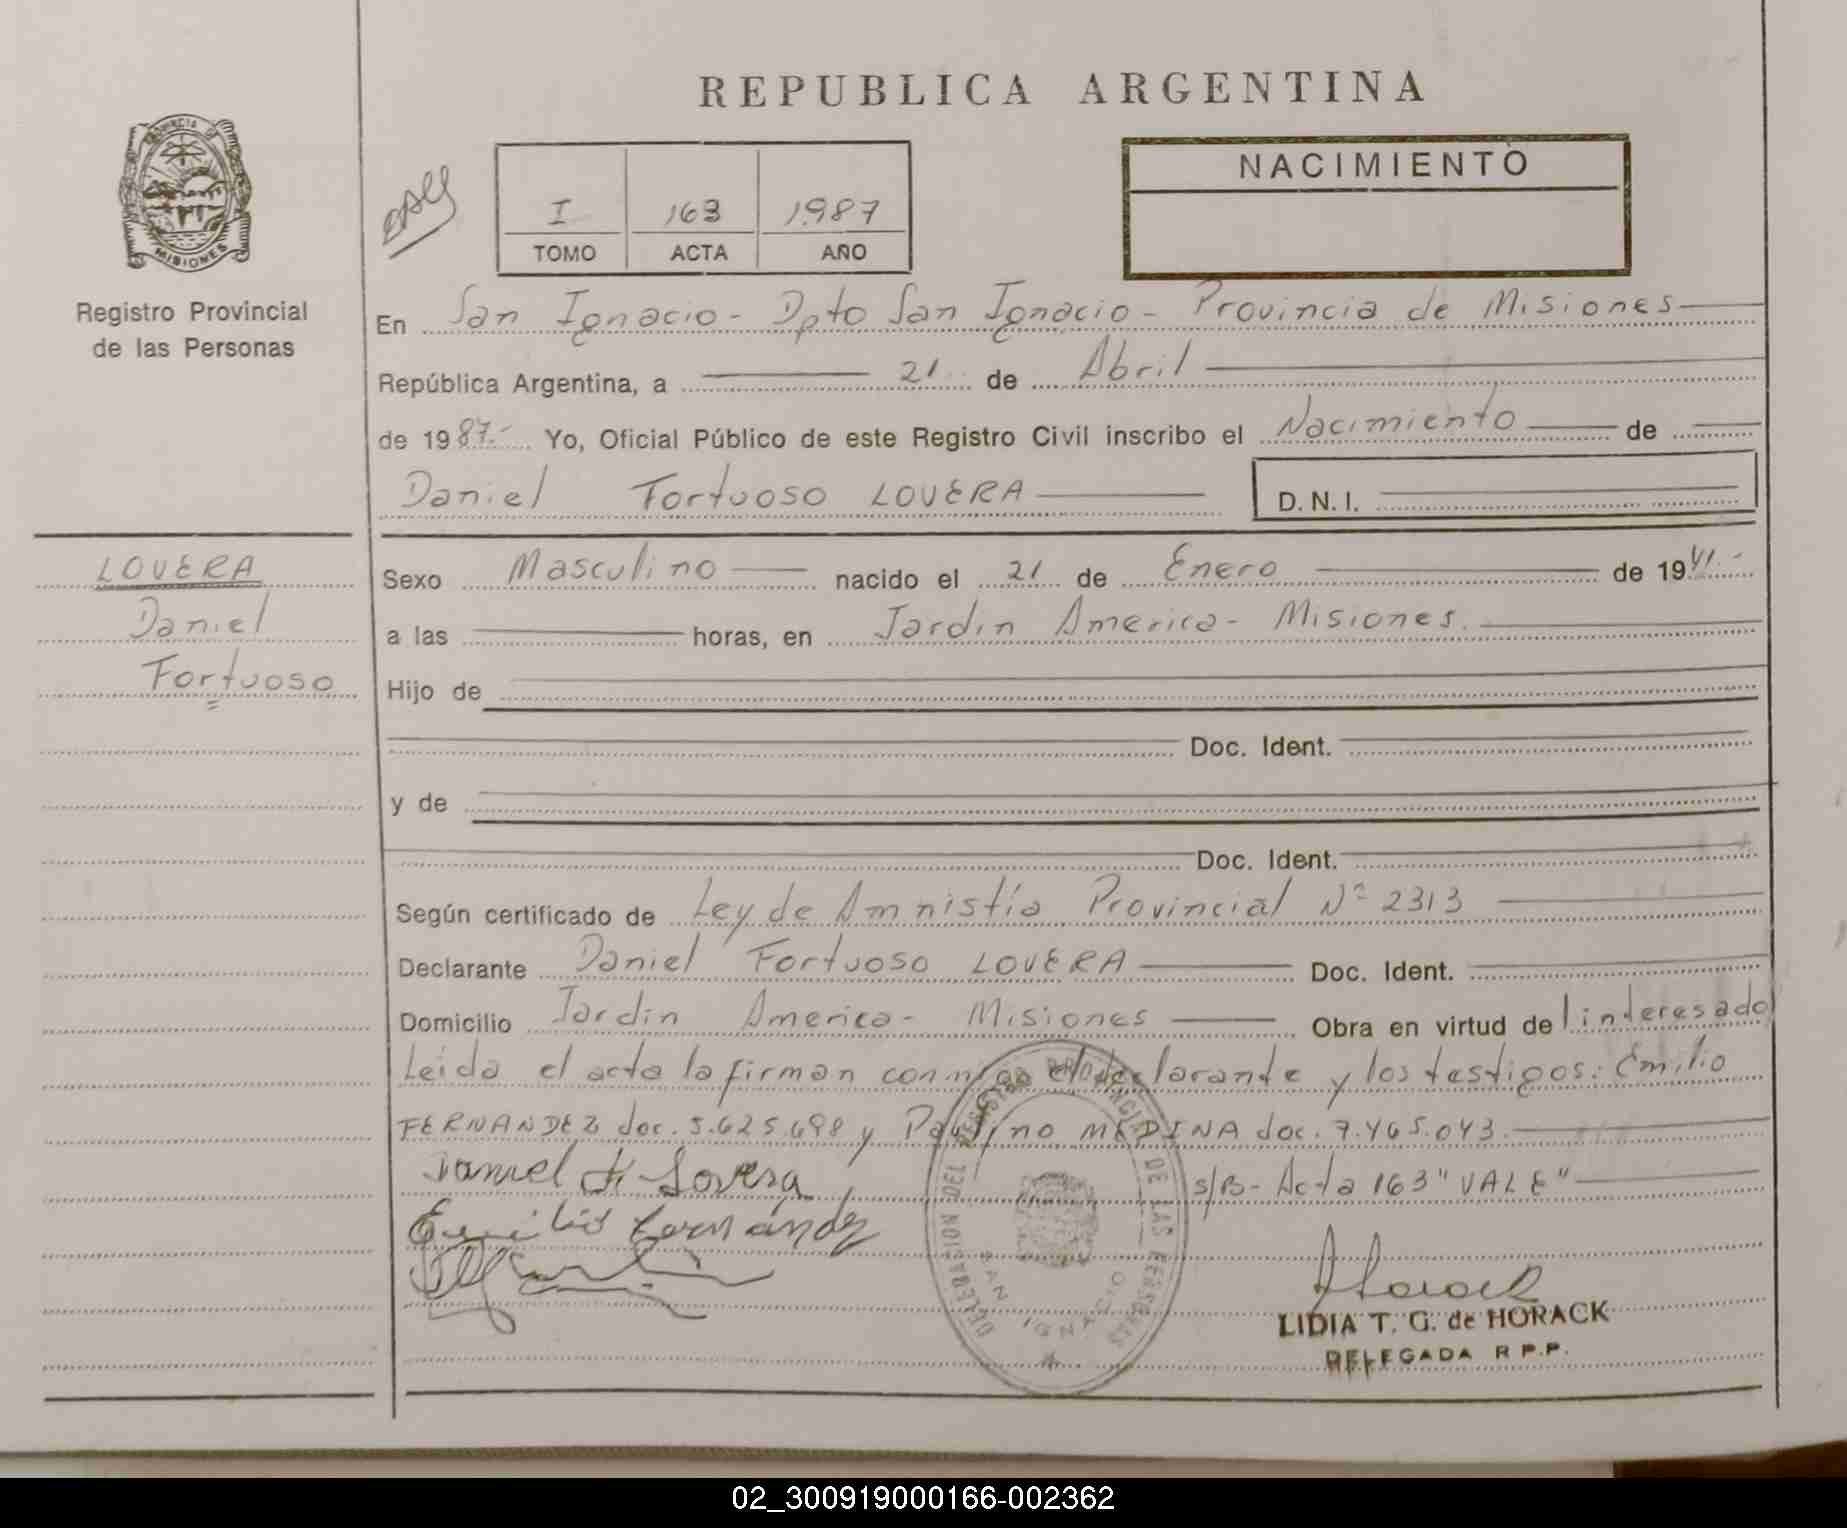 REPUBLICA ARGENTINA
PROVINCIA DE
MISIONES
Registro Provincial
de las Personas
I 163 1987
TOMO ACTA AÑO
NACIMIENTO
En San Ignacio - Dpto San Ignacio - Provincia de Misiones
República Argentina, a 21 de Abril
de 1987.- Yo, Oficial Público de este Registro Civil inscribo el Nacimiento de
Daniel Fortuoso LOVERA D.N.I.
LOVERA
Daniel
Fortuoso
Sexo Masculino nacido el 21 de Enero de 1941.-
a las horas, en Jardin America - Misiones.
Hijo de
Doc. Ident.
y de
Doc. Ident.
Según certificado de Ley de Amnistía Provincial Nº 2313
Declarante Daniel Fortuoso LOVERA Doc. Ident.
Domicilio Jardin America - Misiones Obra en virtud de l interesado
Leida el acta la firman conmigo el declarante y los testigos: Emilio
FERNANDEZ doc. 5.625.698 y Paulino MEDINA doc. 7.465.043.
Daniel F. Lovera s/B - Acta 163 "VALE"
Emilio Fernández
DELEGACION DEL REGISTRO PROVINCIAL DE LAS PERSONAS
SAN IGNACIO
Horack
LIDIA T. G. de HORACK
DELEGADA R P.P.
02_300919000166-002362